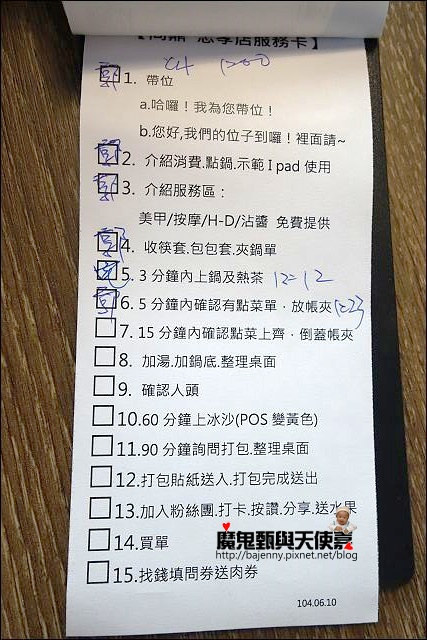 忠孝店服務卡】
C4 1200
1. 帶位
a.哈囉！我為您帶位！
b.您好,我們的位子到囉！裡面請~
2. 介紹消費.點鍋.示範 I pad 使用
3. 介紹服務區：
美甲/按摩/H-D/沾醬 免費提供
4. 收筷套.包包套.夾鍋單
5. 3 分鐘內上鍋及熱茶 12=12
6. 5 分鐘內確認有點菜單．放帳夾
7. 15 分鐘內確認點菜上齊．倒蓋帳夾
8. 加湯.加鍋底.整理桌面
9. 確認人頭
10.60 分鐘上冰沙(POS 變黃色)
11.90 分鐘詢問打包.整理桌面
12.打包貼紙送入.打包完成送出
13.加入粉絲團.打卡.按讚.分享.送水果
14.買單
15.找錢填問券送肉券
魔鬼甄與天使嘉
http://bajenny.pixnet.net/blog
104.06.10